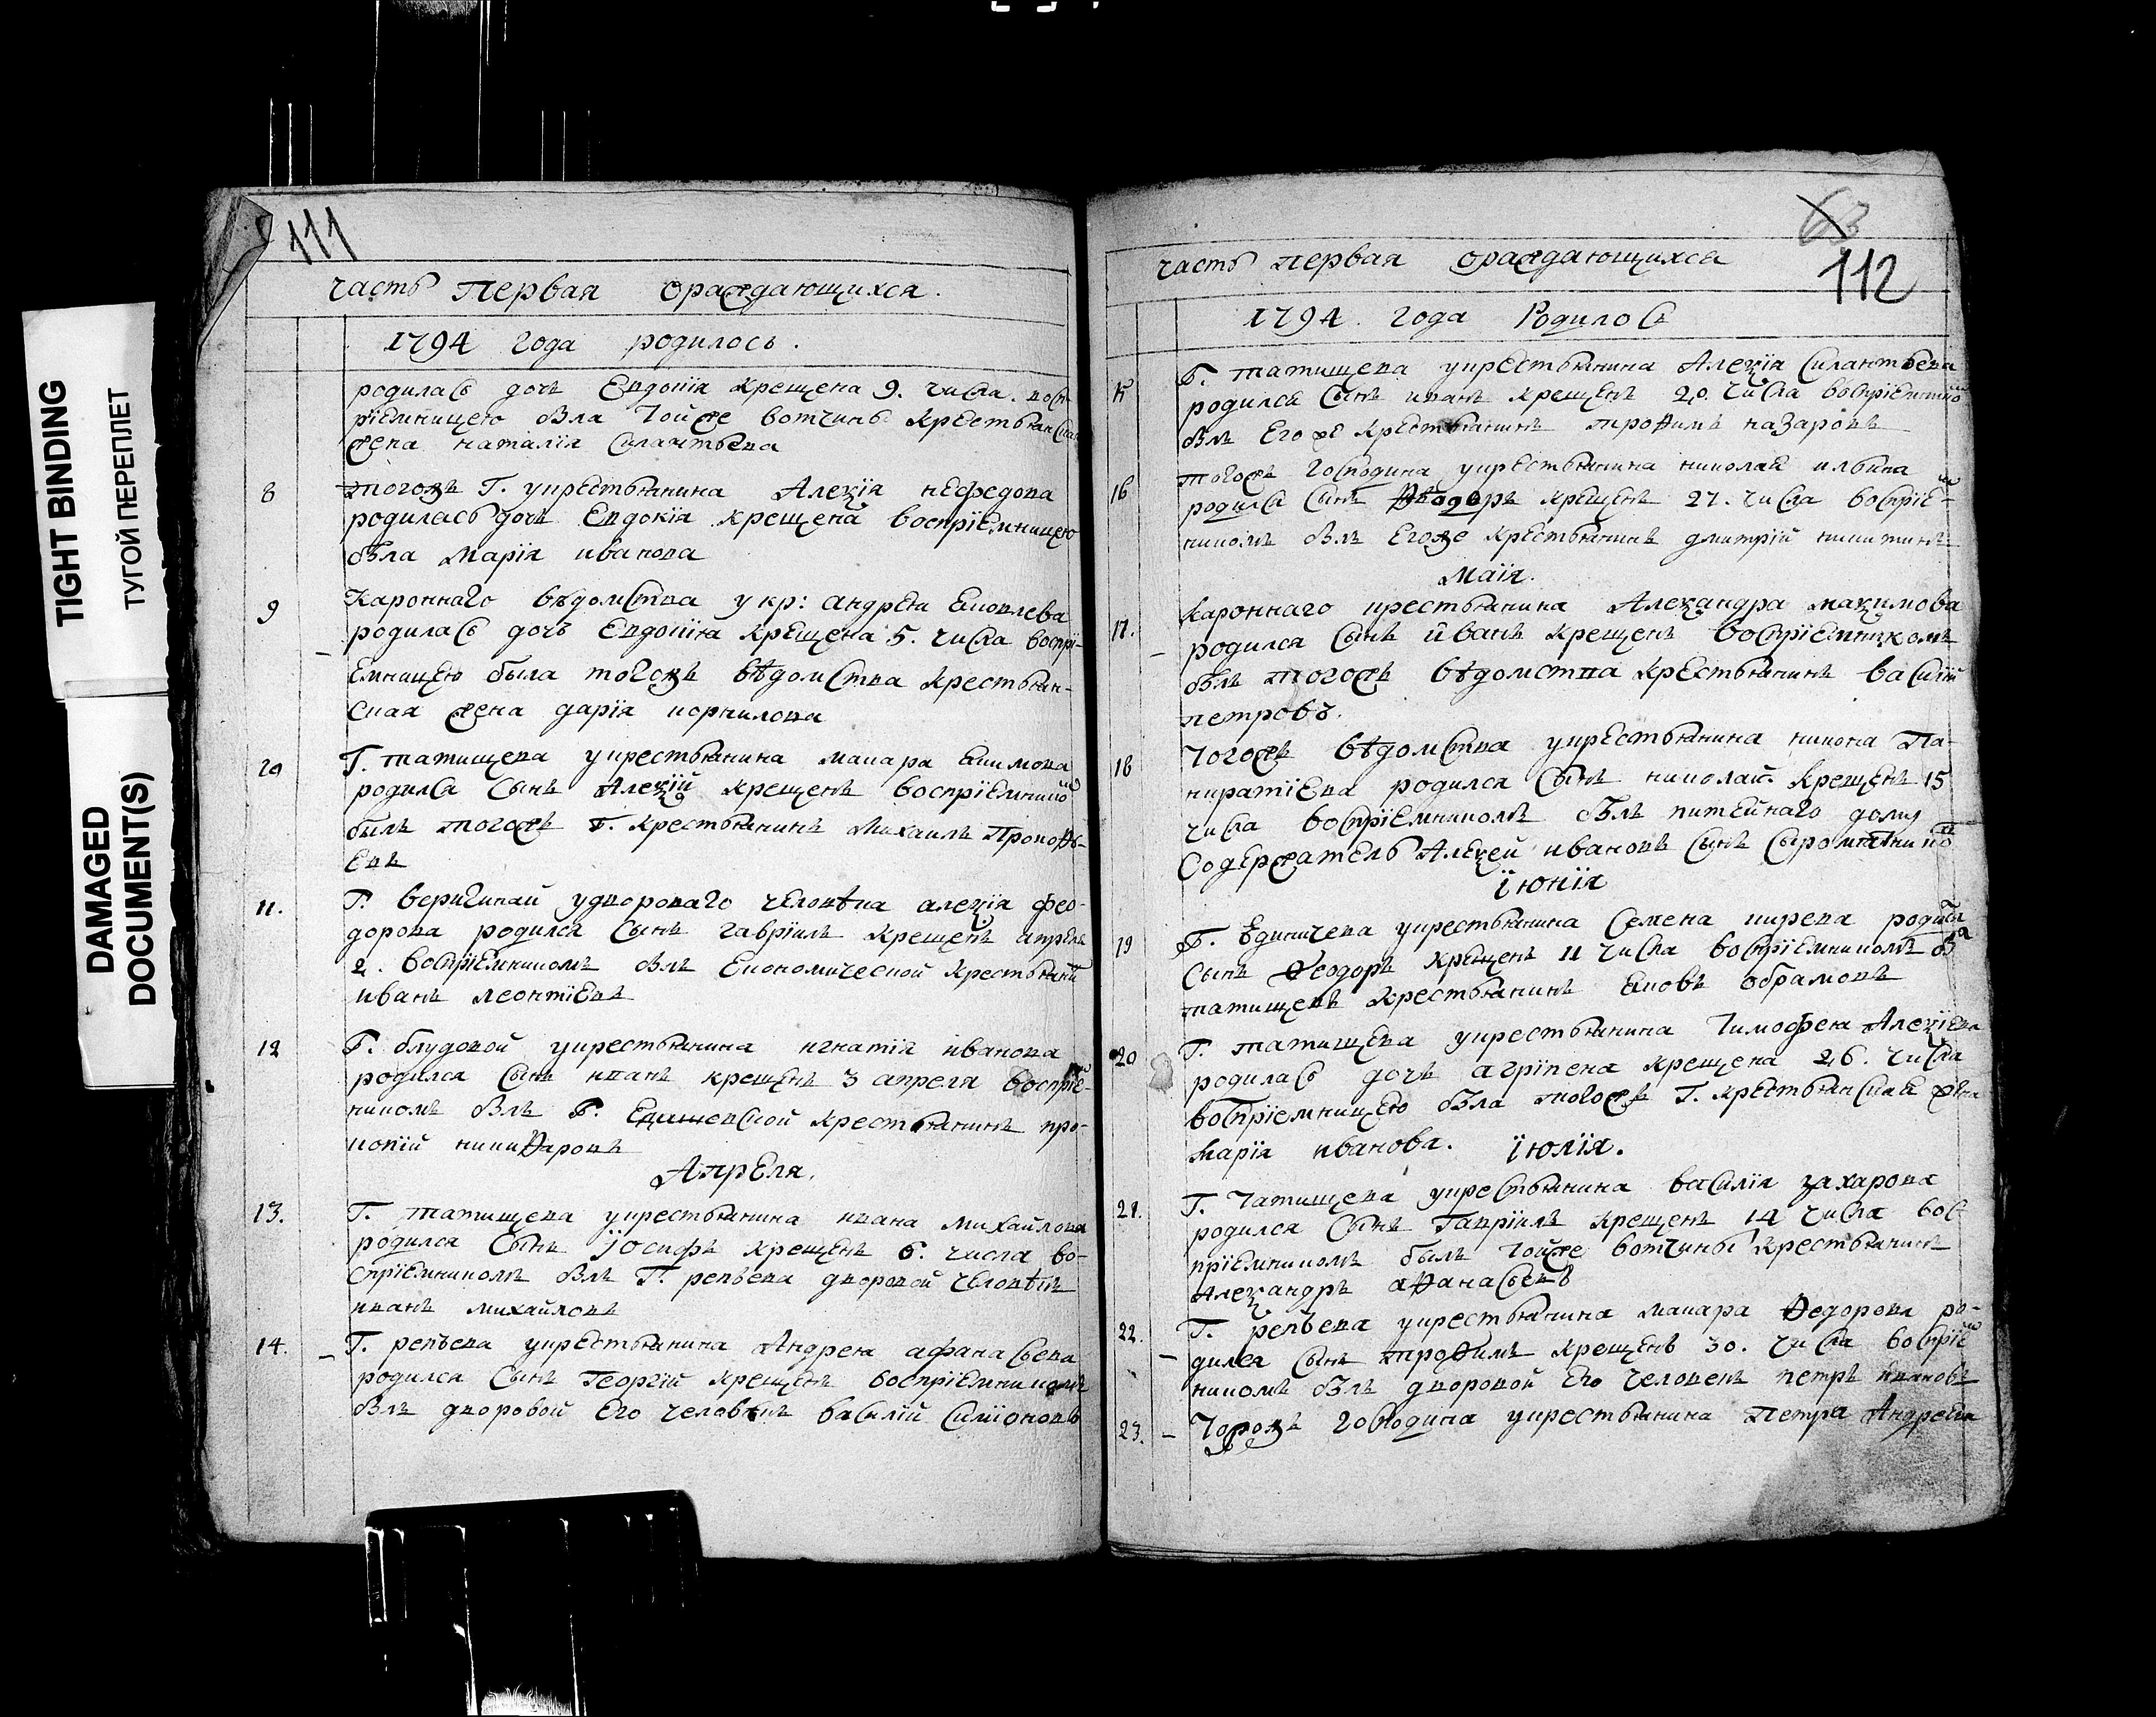 TIGHT BINDING
ТУГОЙ ПЕРЕПЛЕТ
DAMAGED
DOCUMENT(S)
111
часть первая ораждающихся.
1794 года родилось.
родилась дочь Евдокія крещена 9. числа. восп-
рiемницею была тойже вотчины крестьянская
жена наталія силантьева
8 тогожъ Г. укрестьянина Алеѯія нефедова
родилась дочь Евдокія крещена воспріемницею
была Марія иванова
9 Кароннаго вѣдомства у кр: андрея яковлева
родилась дочъ Евдокия крещена 5. числа воспрі-
емницею была тогожъ вѣдомства крестьян-
ская жена дарія корнилова
10 Г. татищева укрестьянина макара екимова
родился сынъ Алеѯій крещенъ воспріемнико
былъ тогожъ Г. крестьянинъ Михаилъ Прокофь-
евъ
11. Г. веригинай удвороваго человѣка алеѯія фео-
дорова родился сынъ гавріилъ крещенъ апреля
2. воспріемникомъ былъ Економической крестьянин
иванъ леонтіевъ
12 Г. блудовой укрестьянина игнатія иванова
родился сынъ иванъ крещенъ 3 апреля воспріем-
никомъ былъ Г. крестьянинъ про-
копій никифаровъ
Апреля.
13. Г. татищева укрестьянина ивана михайлова
родился сынъ іосифъ крещенъ 6. числа во-
спріемникомъ былъ Г. репьева дворовой человѣкъ
иванъ михайловъ
14. Г. репьева укрестьянина Андрея афанасьева
родился сынъ Георгій крещенъ воспріемникомъ
былъ дворовой его человѣкъ василій симіоновъ
63
112
часть первая ораждающихся
1794. года Родилось
15 Г. татищева укрестьянина Алеѯія силантьева
родился сынъ иванъ крещенъ 20. числа воспріемнико
былъ Его же крестьянинъ трофимъ назаровъ
16 тогожъ господина укрестьянина николая ильина
родился сынъ Ѳеодоръ крещенъ 27. числа воспріем-
никомъ былъ Егоже крестьянинъ дмитрій никитинъ
маія.
17. кароннаго крестьянина Алеѯандра маѯимова
родился сынъ иванъ крещенъ воспріемникомъ
былъ тогожъ вѣдомства крестьянинъ василій
петровъ.
18 тогожъ вѣдомства укрестьянина никона Па-
нкратіева родился сынъ николай крещенъ 15
числа воспріемникомъ былъ питейнаго дому
содержатель Алеѯей ивановъ сынъ
іюнія
19 Г. укрестьянина семена родился
сынъ Ѳеодоръ крещенъ 11 числа воспріемникомъ был
татищевъ крестьянинъ яковъ обрамовъ
20 Г. татищева укрестьянина Тимофея Алеѯіева
родилась дочь агріпена крещена 26. числа
воспріемницею была тогожъ Г. крестьянская жена
Марія иванова. іюлія.
21. Г. татищева укрестьянина василія захарова
родился сынъ Гавріилъ крещенъ 14 числа вос-
пріемникомъ былъ тойже вотчины крестьянинъ
Алеѯандръ аѳанасьевъ
22. Г. репьева укрестьянина макара Ѳедорова ро-
дился сынъ троѳимъ крещенъ 30. числа воспріем-
никомъ былъ дворовой его человекъ петръ ивановъ
23. Тогожъ господина укрестьянина Петра Андреева